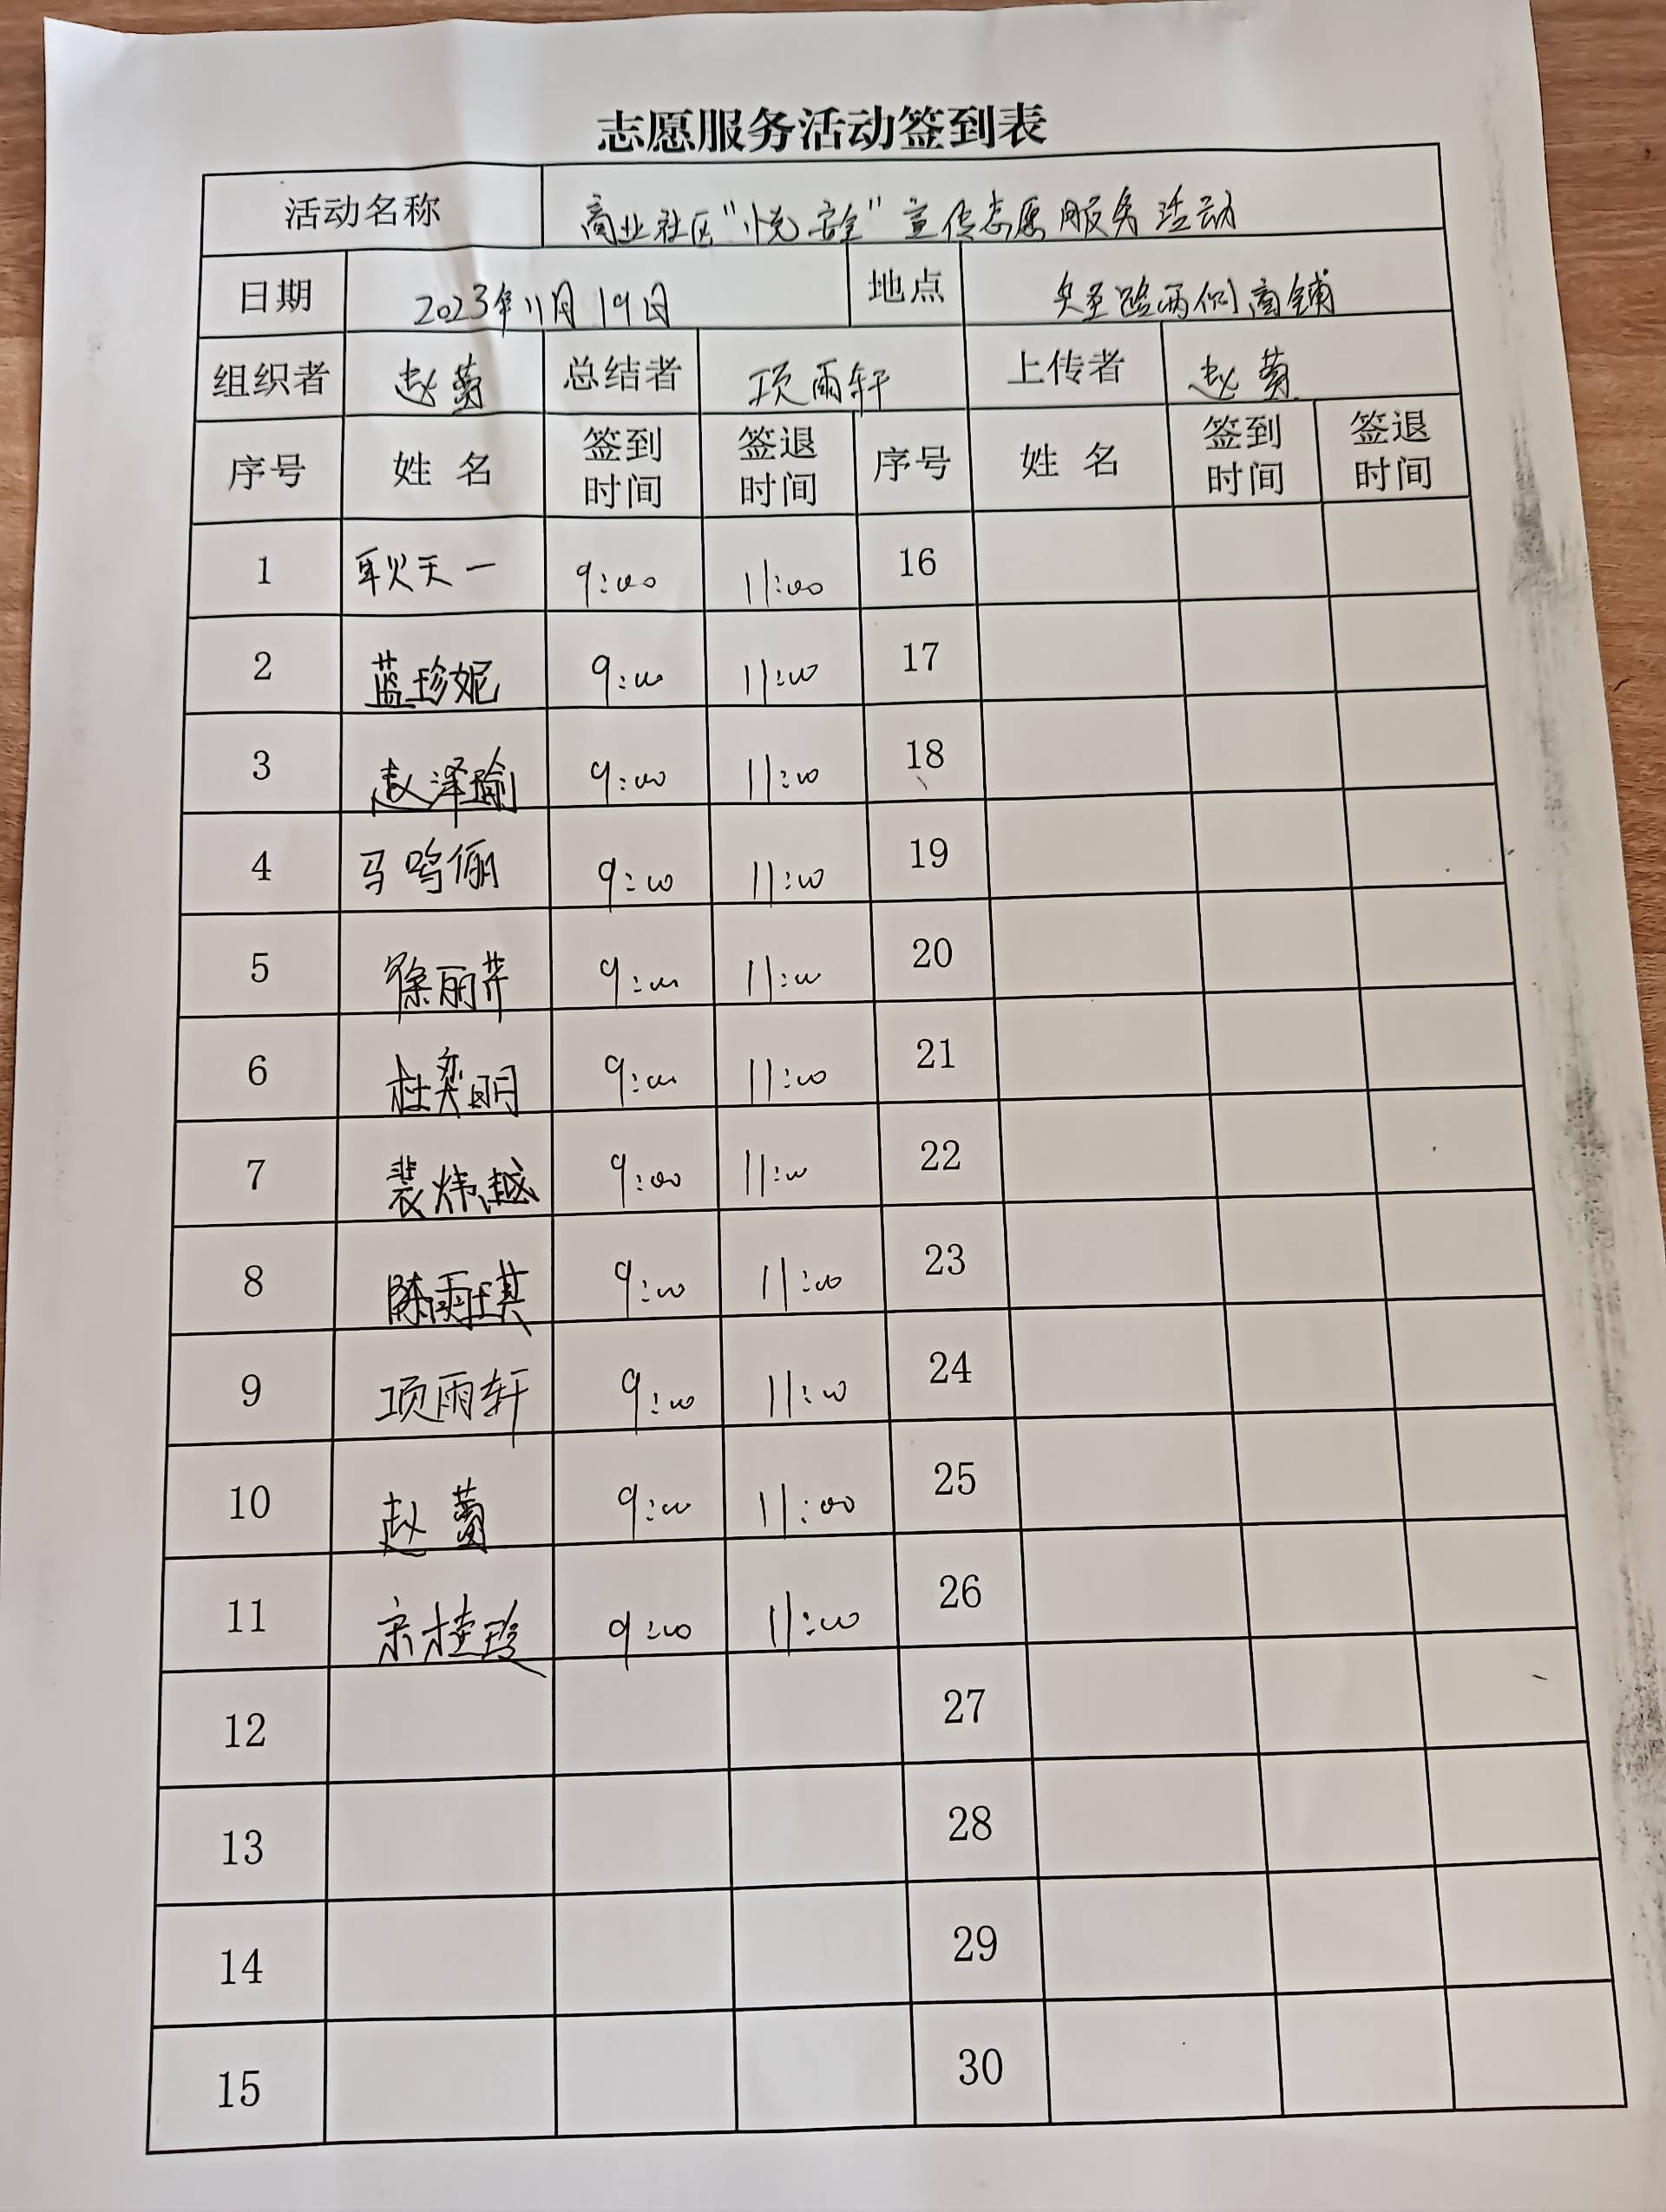 志愿服务活动签到表
活动名称 商业社区"悦安全"宣传志愿服务活动
日期 2023年11月19日 地点 路两侧商铺
组织者 赵 总结者 项雨轩 上传者 赵
序号 姓名 签到时间 签退时间 序号 姓名 签到时间 签退时间
1 耿天一 9:00 11:00 16
2 蓝珍妮 9:00 11:00 17
3 赵泽瑜 9:00 11:00 18
4 马鸣俪 9:00 11:00 19
5 徐丽芹 9:00 11:00 20
6 杜奕明 9:00 11:00 21
7 裴炜越 9:00 11:00 22
8 陈雨琪 9:00 11:00 23
9 项雨轩 9:00 11:00 24
10 赵 9:00 11:00 25
11 宋桂玲 9:00 11:00 26
12 27
13 28
14 29
15 30